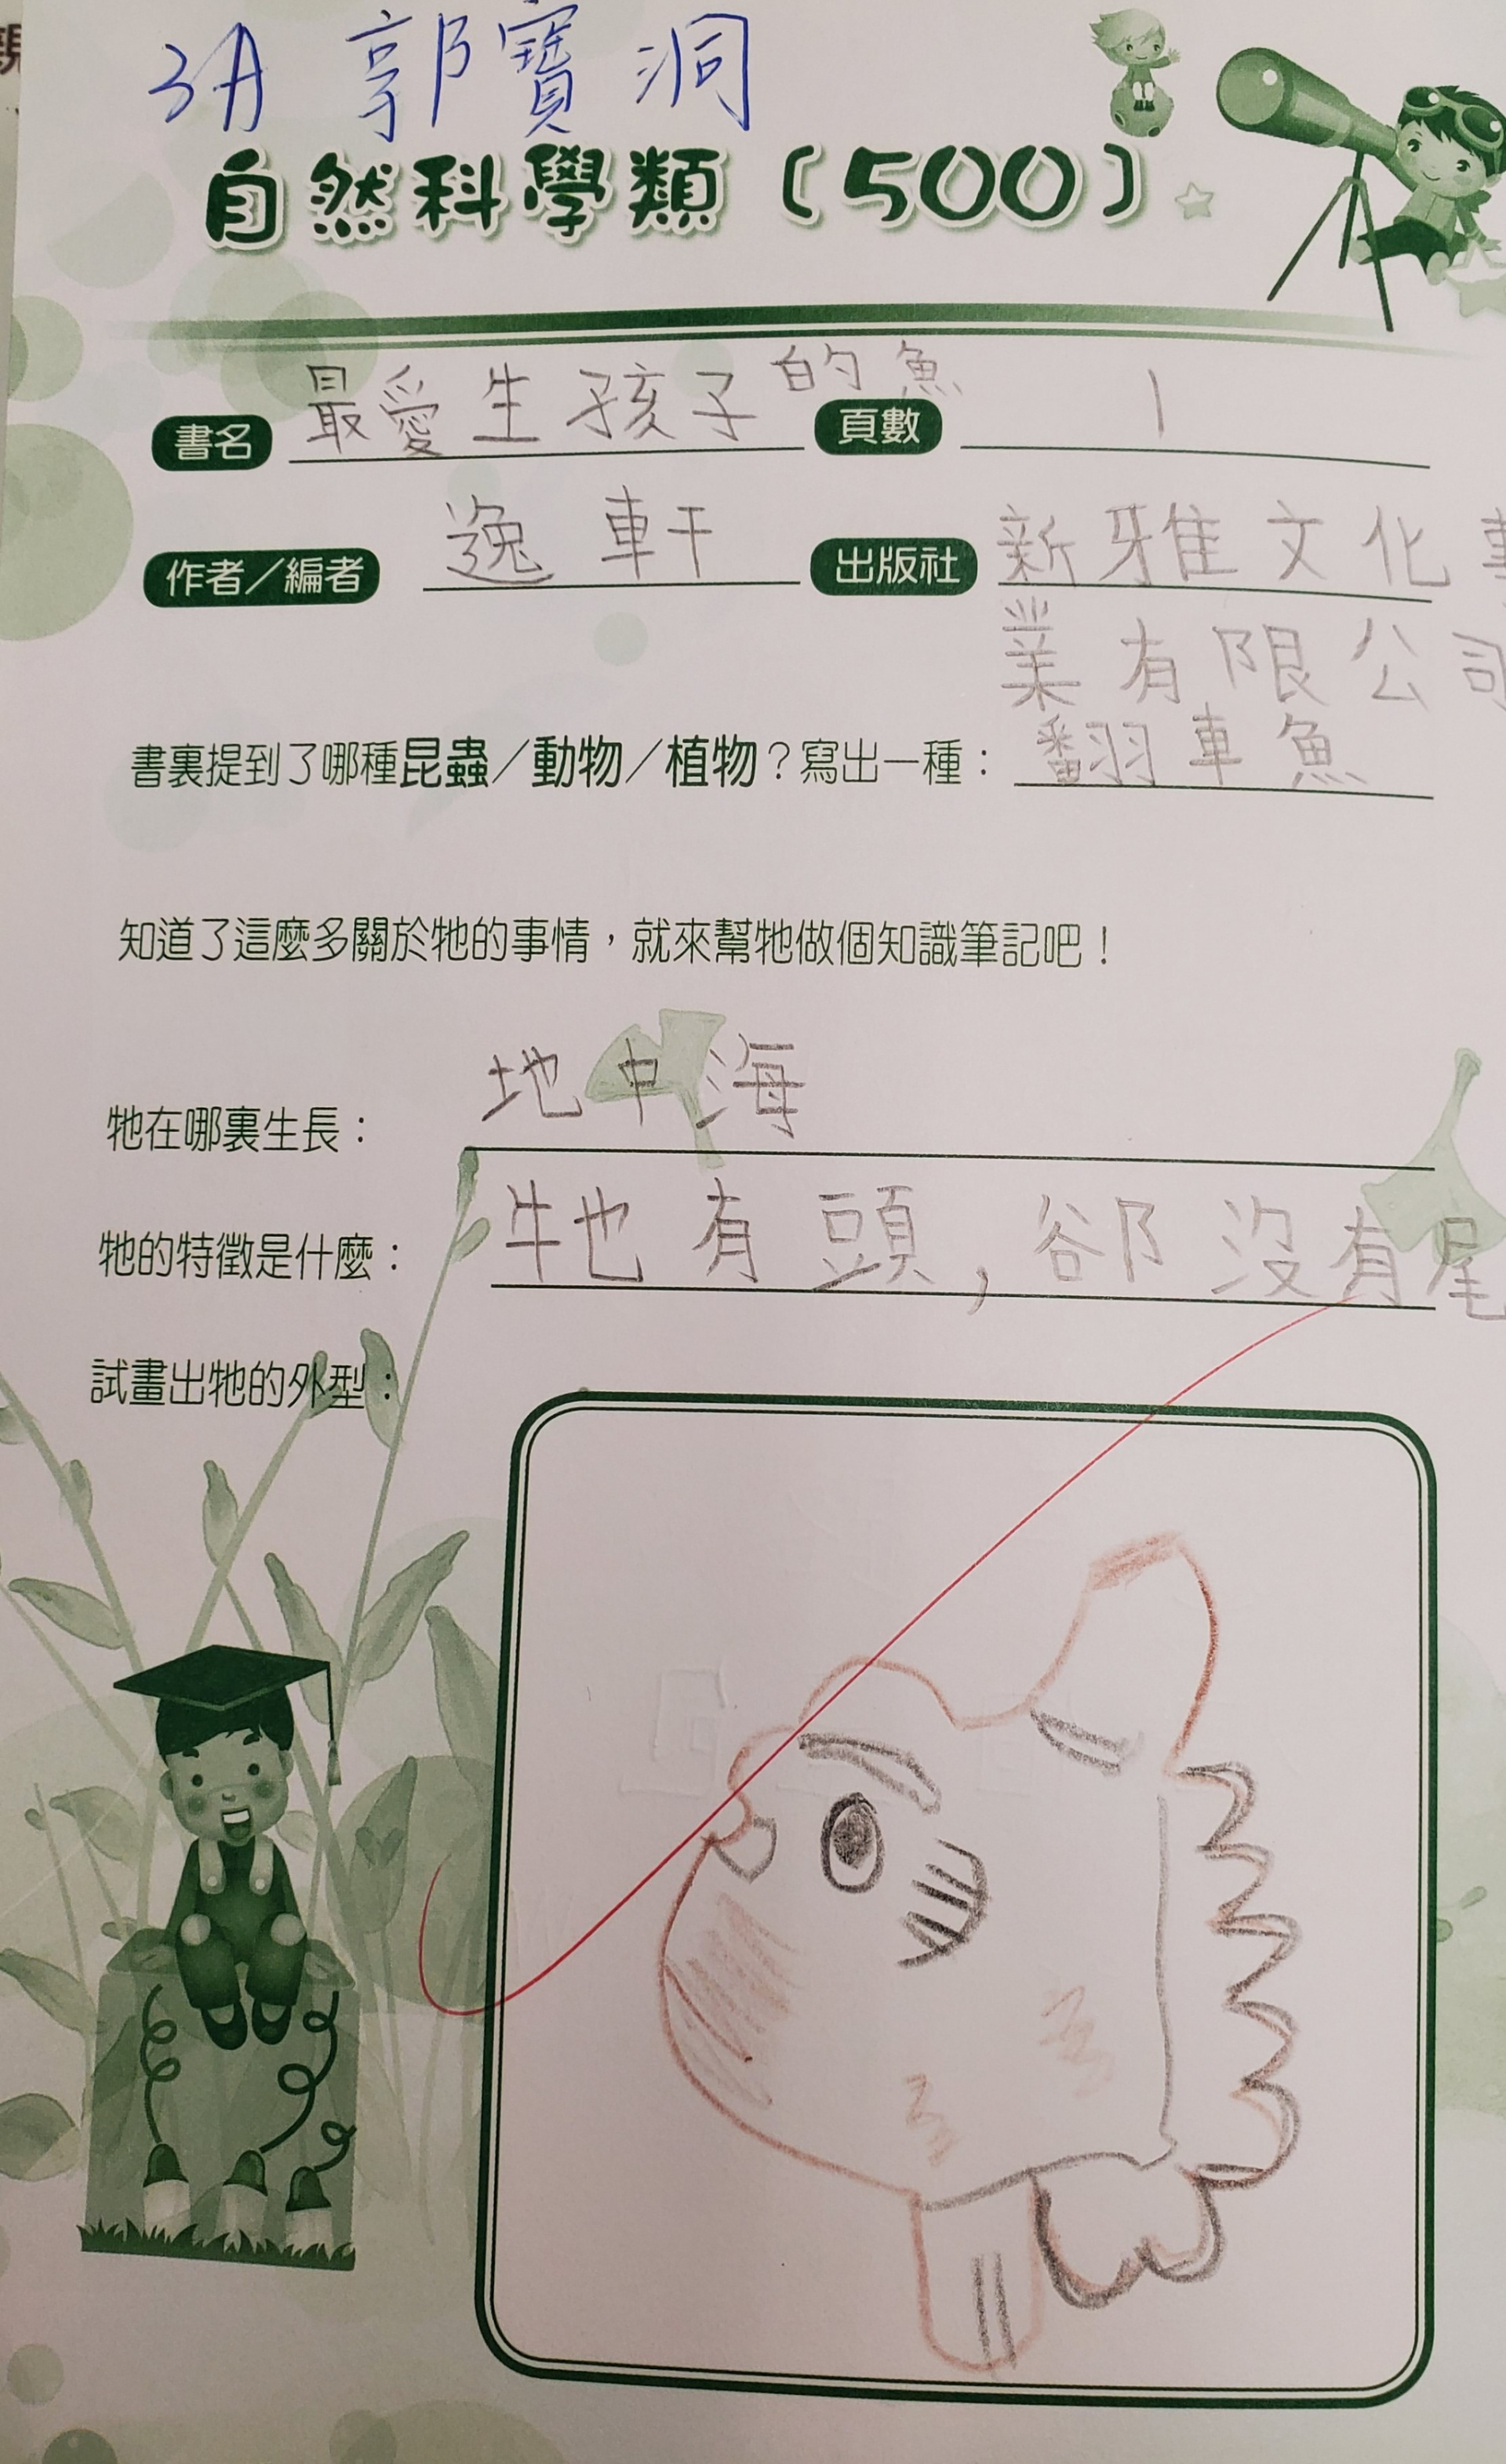 3A 郭寶洞
自然科學類（500）
書名 最愛生孩子的魚 頁數 1
作者／編者 逸軒 出版社 新雅文化事
業有限公司
書裏提到了哪種昆蟲／動物／植物？寫出一種： 翻車魚
知道了這麼多關於牠的事情，就來幫牠做個知識筆記吧！
牠在哪裏生長： 地中海
牠的特徵是什麼： 牠有頭，卻沒有尾
試畫出牠的外型：